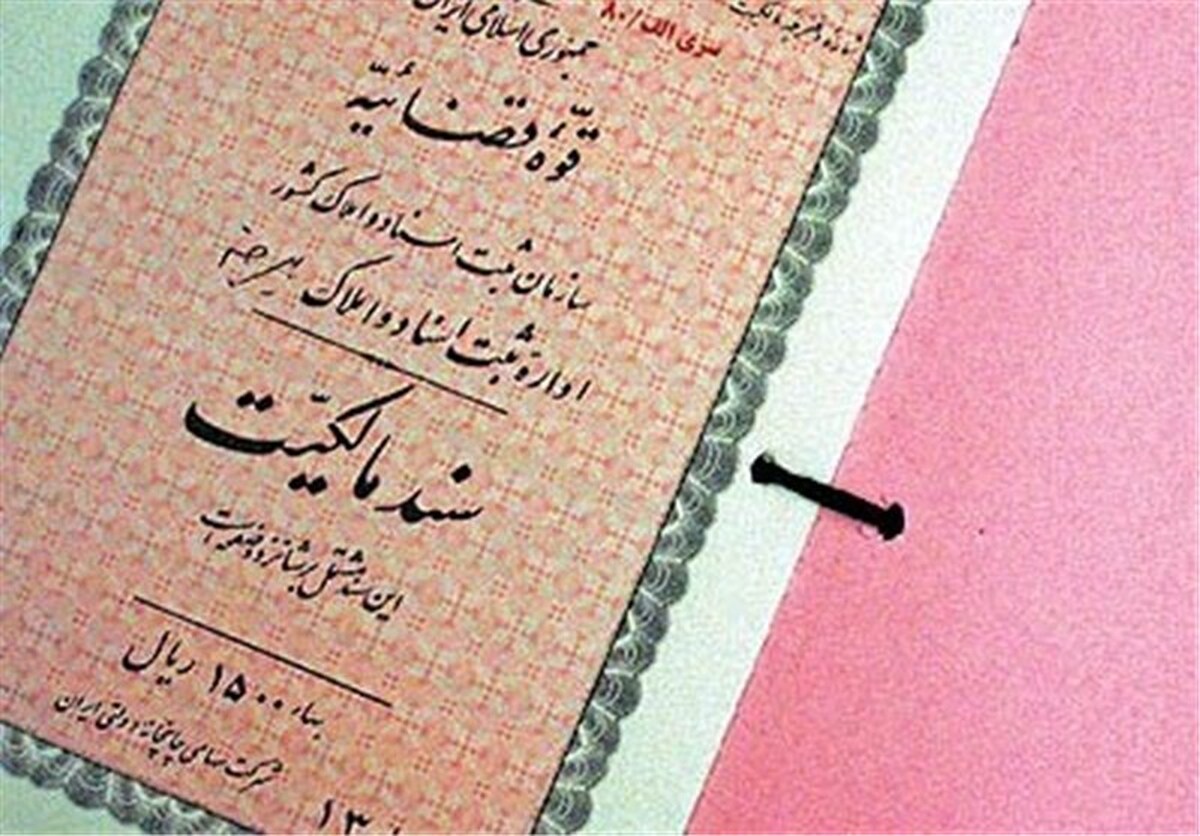 شماره دفترچه مالکیت
سری الف/۸۰
جمهوری اسلامی ایران
قوّهٔ قضائیّه
سازمان ثبت اسناد و املاک کشور
ادارهٔ ثبت اسناد و املاک بیرجند
سند مالکیّت
این سند مشتمل بر شانزده صفحه است
بهاء ۱۵۰۰ ریال
شرکت سهامی چاپخانه دولتی ایران